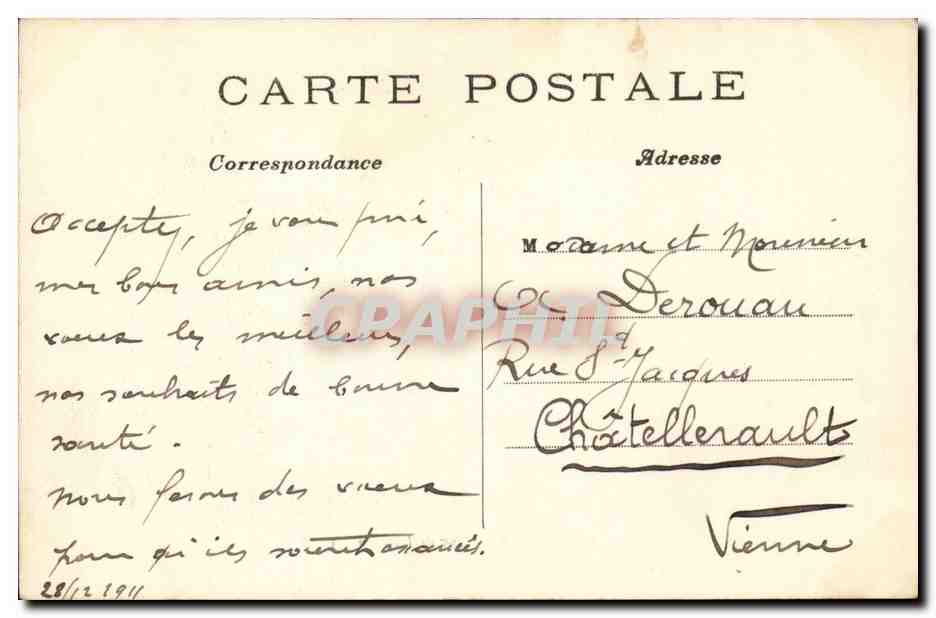 CARTE POSTALE
Correspondance
Acceptez, je vous prie,
mes bons amis, nos
voeux les meilleurs,
nos souhaits de bonne
santé.
Nous ferons des voeux
pour qu'ils soient exaucés.
28/12 1911
Adresse
Madame et Monsieur
Derouau
Rue St Jacques
Châtellerault
Vienne
CPAPHIL